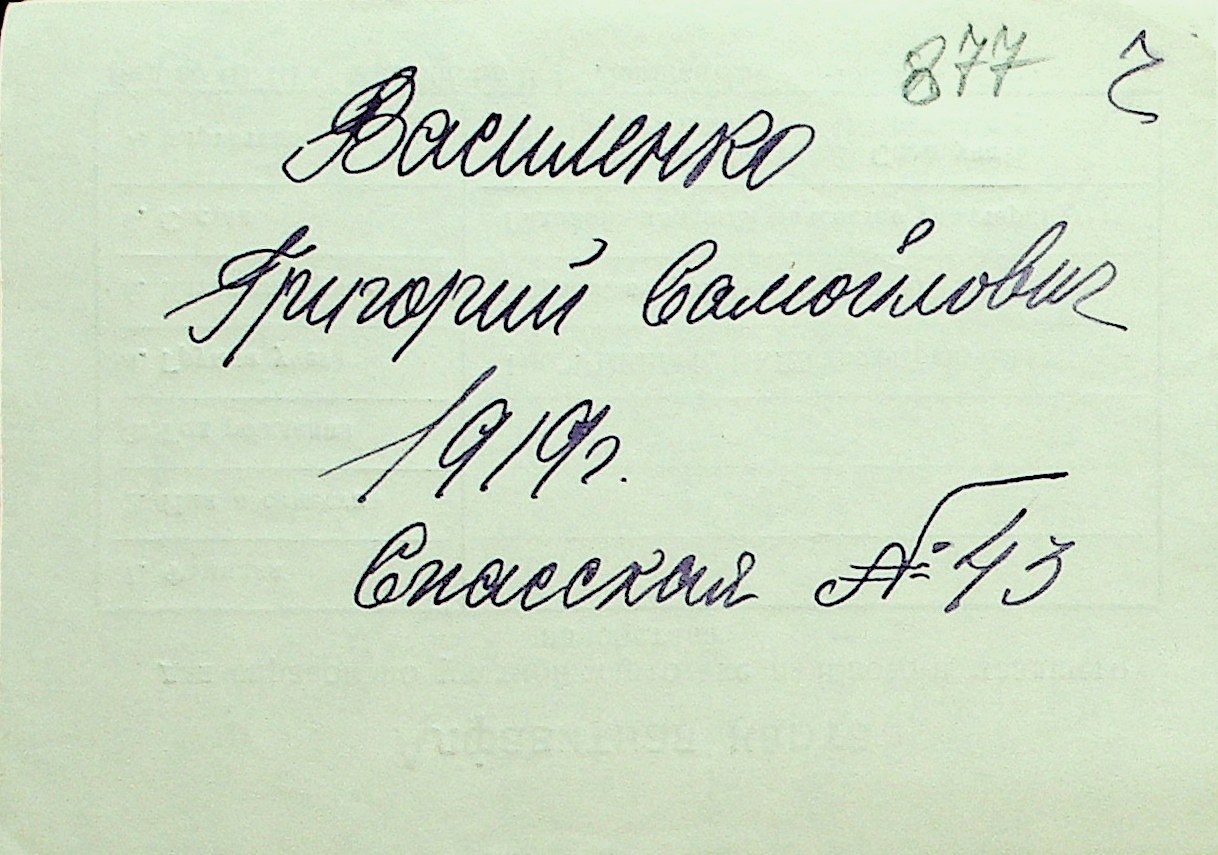 877 г
Василенко
Григорий Самойлович
1919г.
Спасская № 43